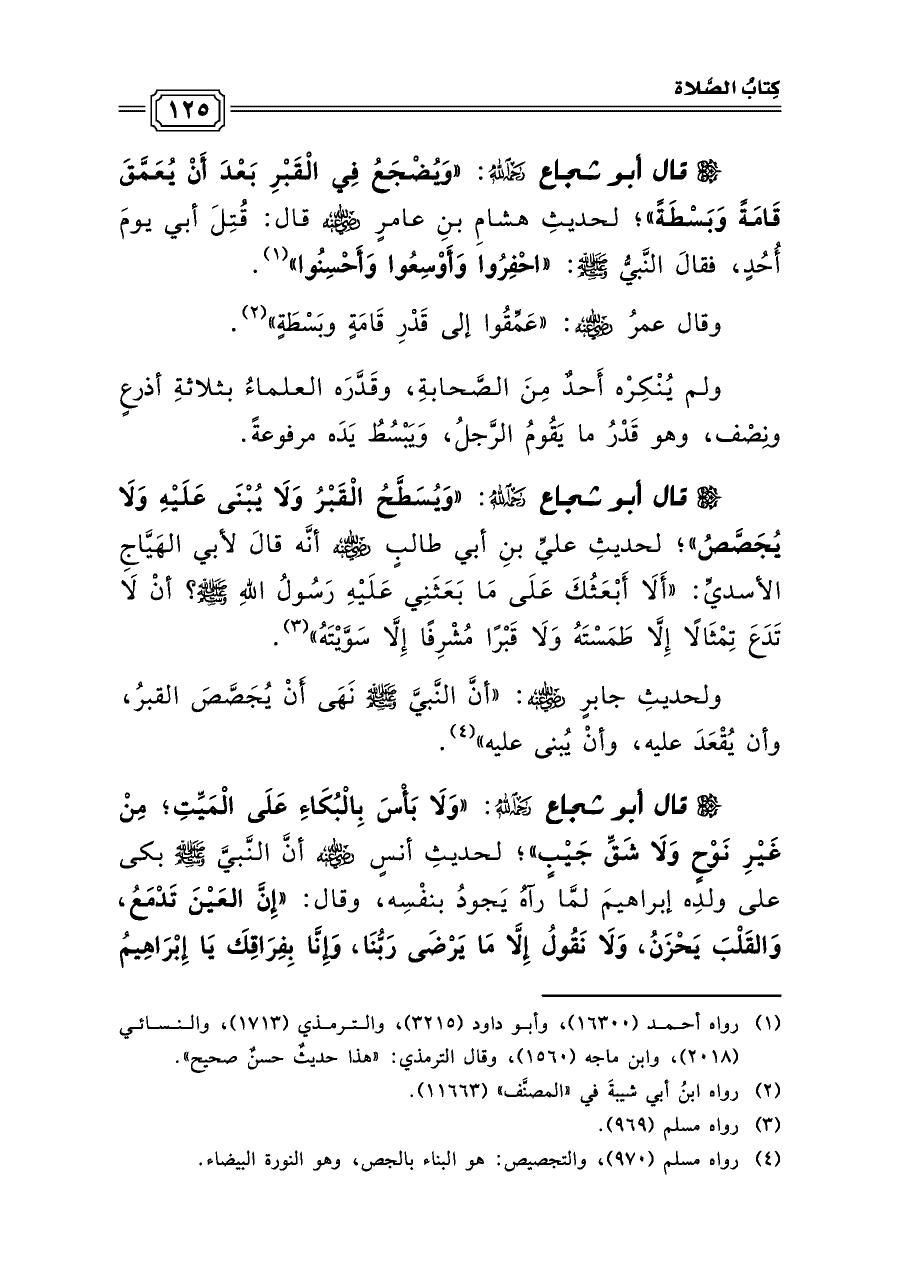 كِتابُ الصَّلاة
١٢٥
قال أبو شجاع رَحِمَهُ اللهُ: «وَيُضْجَعُ فِي الْقَبْرِ بَعْدَ أَنْ يُعَمَّقَ
قَامَةً وَبَسْطَةً»؛ لحديثِ هشامِ بنِ عامرٍ رضي الله عنه قال: قُتِلَ أبي يومَ
أُحُدٍ، فقالَ النَّبيُّ ﷺ: «احْفِرُوا وَأَوْسِعُوا وَأَحْسِنُوا»(١).
وقال عمرُ رضي الله عنه: «عَمِّقُوا إلى قَدْرِ قَامَةٍ وبَسْطَةٍ»(٢).
ولم يُنْكِرْه أَحدٌ مِنَ الصَّحابةِ، وقَدَّرَه العلماءُ بثلاثةِ أذرعٍ
ونِصْف، وهو قَدْرُ ما يَقُومُ الرَّجلُ، وَيَبْسُطُ يَدَه مرفوعةً.
قال أبو شجاع رَحِمَهُ اللهُ: «وَيُسَطَّحُ الْقَبْرُ وَلَا يُبْنَى عَلَيْهِ وَلَا
يُجَصَّصُ»؛ لحديثِ عليِّ بنِ أبي طالبٍ رضي الله عنه أنَّه قالَ لأبي الهَيَّاجِ
الأسديِّ: «أَلَا أَبْعَثُكَ عَلَى مَا بَعَثَنِي عَلَيْهِ رَسُولُ اللهِ ﷺ؟ أنْ لَا
تَدَعَ تِمْثَالًا إِلَّا طَمَسْتَهُ وَلَا قَبْرًا مُشْرِفًا إِلَّا سَوَّيْتَهُ»(٣).
ولحديثِ جابرٍ رضي الله عنه: «أنَّ النَّبيَّ ﷺ نَهَى أَنْ يُجَصَّصَ القبرُ،
وأن يُقْعَدَ عليه، وأنْ يُبنى عليه»(٤).
قال أبو شجاع رَحِمَهُ اللهُ: «وَلَا بَأْسَ بِالْبُكَاءِ عَلَى الْمَيِّتِ؛ مِنْ
غَيْرِ نَوْحٍ وَلَا شَقِّ جَيْبٍ»؛ لحديثِ أنسٍ رضي الله عنه أنَّ النَّبيَّ ﷺ بكى
على ولدِه إبراهيمَ لمَّا رآهُ يَجودُ بنفْسِه، وقال: «إِنَّ العَيْنَ تَدْمَعُ،
وَالقَلْبَ يَحْزَنُ، وَلَا نَقُولُ إِلَّا مَا يَرْضَى رَبُّنَا، وَإِنَّا بِفِرَاقِكَ يَا إِبْرَاهِيمُ
(١) رواه أحمد (١٦٣٠٠)، وأبو داود (٣٢١٥)، والترمذي (١٧١٣)، والنسائي
(٢٠١٨)، وابن ماجه (١٥٦٠)، وقال الترمذي: «هذا حديثٌ حسنٌ صحيح».
(٢) رواه ابنُ أبي شيبةَ في «المصنَّف» (١١٦٦٣).
(٣) رواه مسلم (٩٦٩).
(٤) رواه مسلم (٩٧٠)، والتجصيص: هو البناء بالجص، وهو النورة البيضاء.